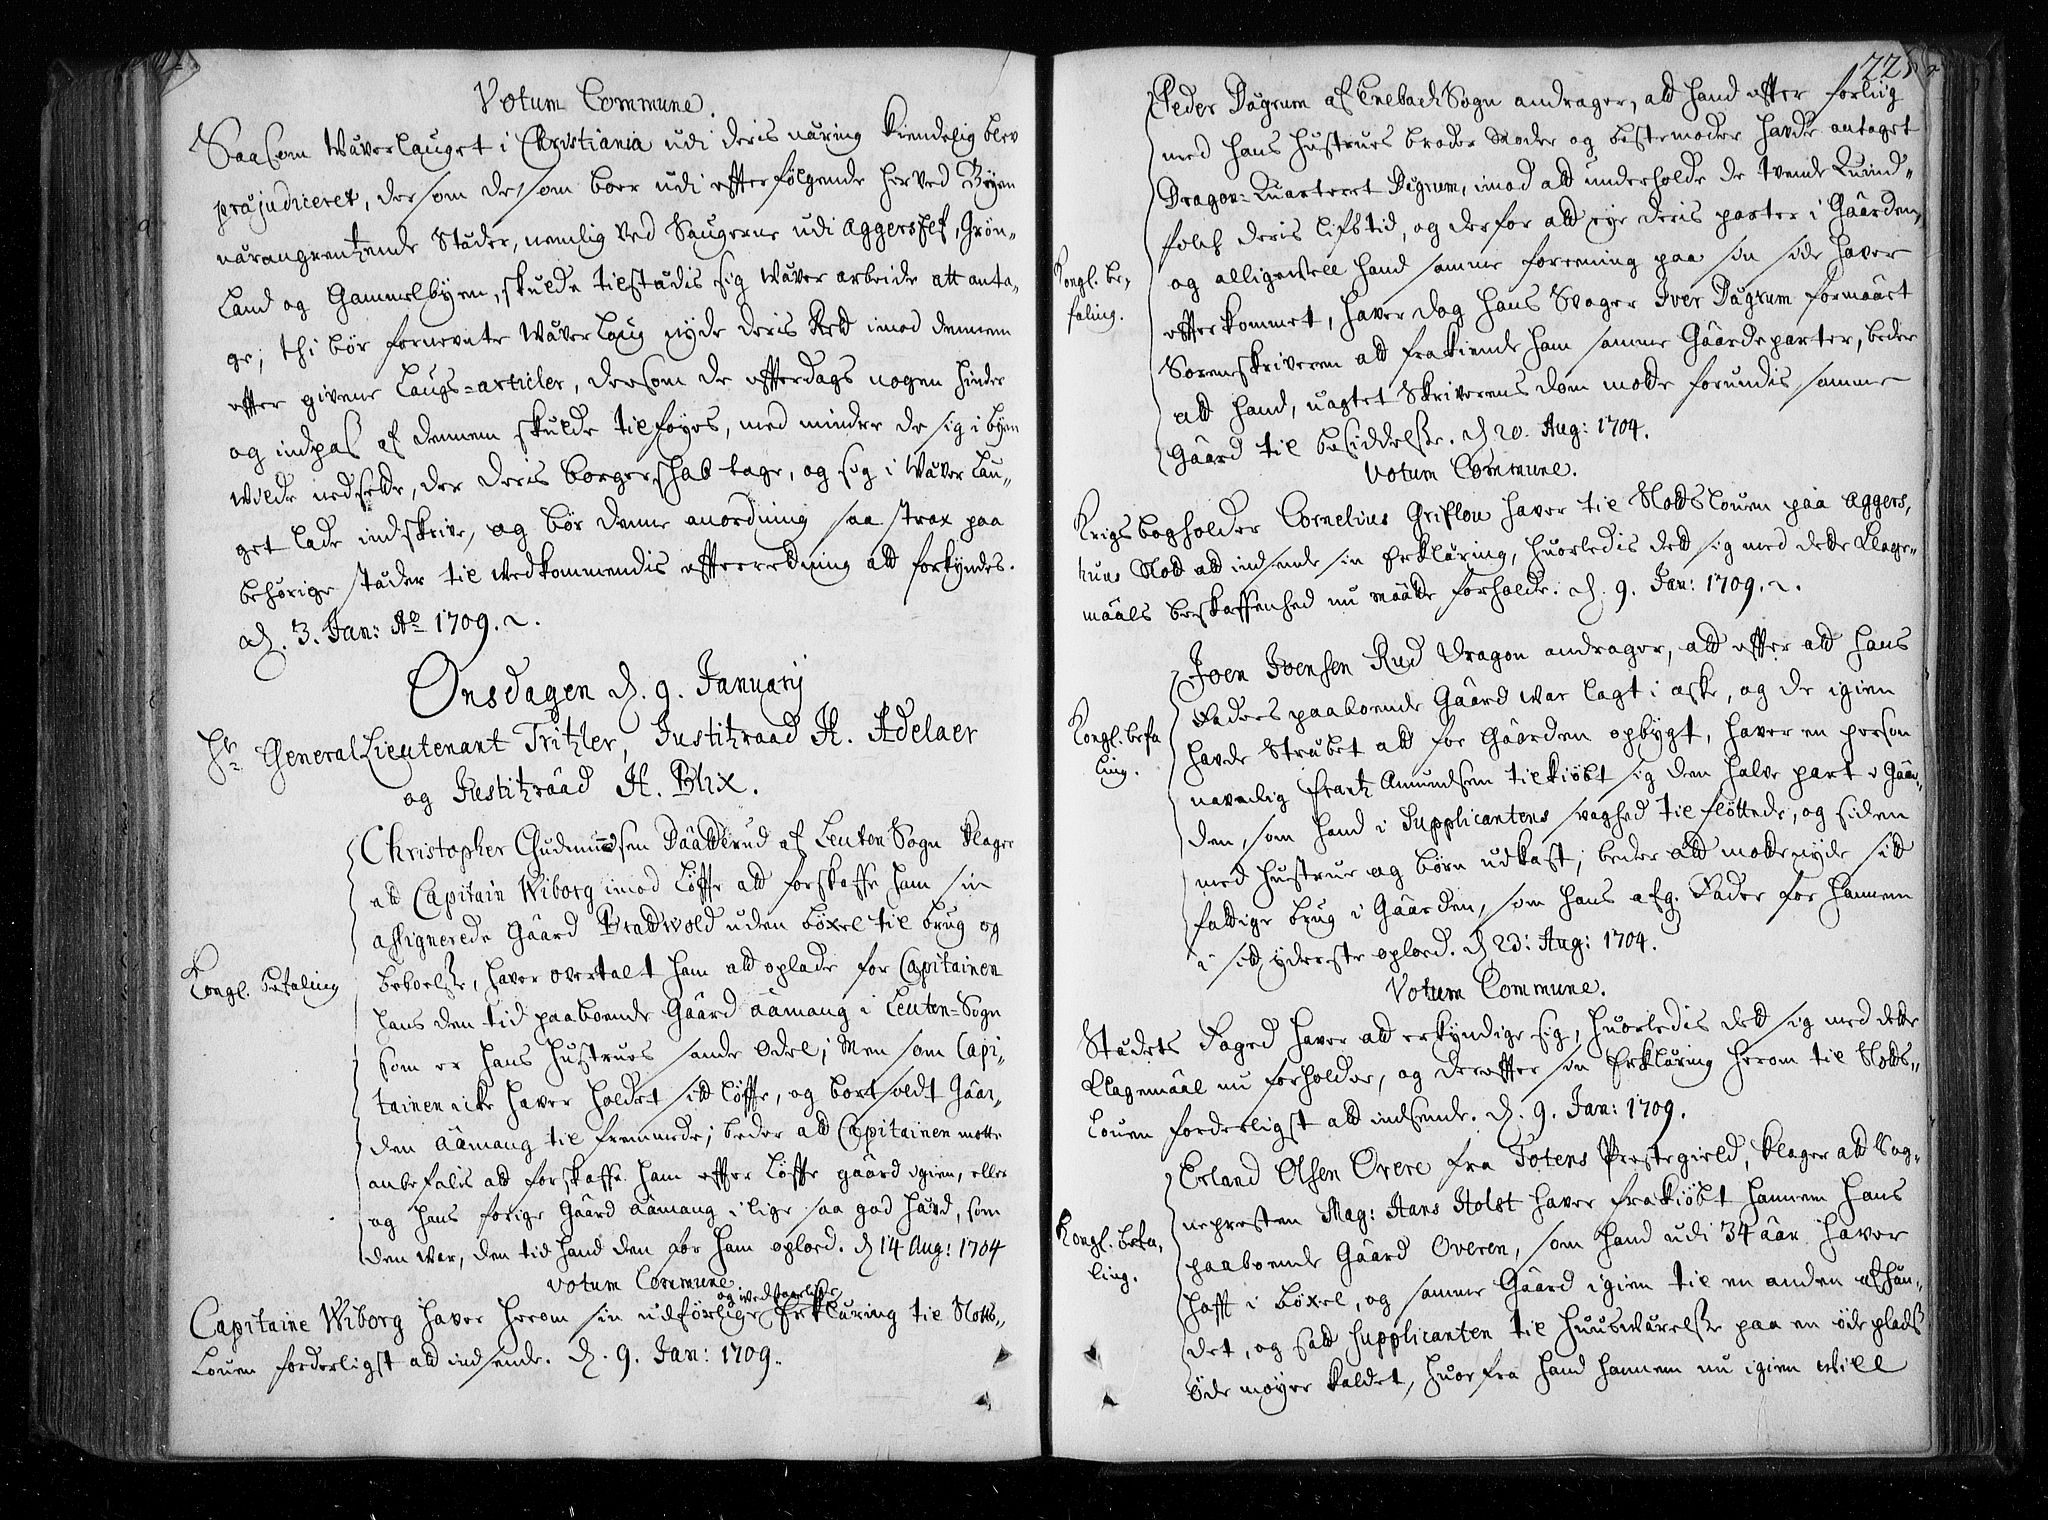 Votum Commune.
Saasom Wæverlauget i Christiania udi deris næring kiendelig blev
præjudiceret, dersom de som boer udi effterfølgende her ved Byen
nærangrentzende Stæder, nemlig ved Saugerne udi Aggers Elf, Grøn„
Land og Gammelbyen, skulde tilstædis sig Wæver arbeide att anta„
ge; thi bør fornevnte Wæver Laug nyde deris Rett imod dennem
effter givene Laugs=articler, dersom de effterdags nogen hinder
og indpas af dennem skulde tilføyes, med mindre de sig i byen
wilde nedsette, der deris borgerskab tage, og sig i Wæver Lau„
get lade indskrive, og bør denne anordning saa strax paa
behørige stæder til vedkommendis effterretning att forkyndes.
d. 3. Jan: Ao 1709.
Onsdagen d. 9. Januarij
Hr. General Lieutenant Tritzler, Justitzraad H. Adelaer
og Justitzraad H. Blix.
Christopher Gudmundsen Daatterud af Leuten Sogn klager
att Capitain Wiborg imod Løffte att forskaffe ham sin
assignerede Gaard Bradwold uden bøxel til brug og
Kongl. befaling
beboelse, haver overtalt ham att oplade for Capitainen
hans den tid paaboende Gaard Aamang i Leuten=Sogn
som er hans hustrues sande Odel; Men som Capi„
tainen icke haver holdet sitt løffte, og bortsoldt Gaar„
den Aamang til fremmede; beder att Capitainen motte
anbefalis att forskaffe ham effter løffte gaard igien, eller
og hans forige Gaard Aamang i lige saa god hævd, som
den war, den tid hand den for ham oplod. d 14 Aug: 1704
Votum Commune
og wedbørlige
Capitaine Wiborg haver herom sin udførlige Erklæring til Slotts„
Louen forderligst att indsende. d. 9. Jan: 1709.
225
Peder Dægrum af Enebach Sogn andrager, att hand effter forlig
med hans hustrues broder Moder og bestemoder hafde antaget
Dragon=Quarteret Dægrum, imod att underholde de tvende Quind„
folch deris lifstid, og derfor att eye deris parter i Gaarden,
og alligewell hand samme foreening paa sin side haver
Kongl. be„
faling.
effterkommet, haver dog hans Svager Iver Dægrum formaaet
Sorenskriveren att frakiende ham samme Gaardeparter, beder
att hand, uagtet Skriverens dom motte forundis samme
Gaard til besiddelse. d 20. Aug: 1704.
Votum Commune.
Krigsbogholder Cornelius Griflou haver til Slotslouen paa Aggers„
huus Slott att indsende sin Erklæring, huorledis dett sig med dette Klage„
maals beskaffenhed nu maatte forholde. d. 9. Jan: 1709.
Joen Joensen Rud Dragon andrager, att effter att hans
Faders paaboende Gaard war lagt i aske, og de igien
Kongl. befa
ling.
hafde stræbet att for Gaarden opbygt, haver en person
navnlig Frantz Amundsen tilkiøbt sig den halve part i Gaar„
den, som hand i Supplicantens svaghed tilfløttede, og siden
med hustrue og børn udkast; beder att motte nyde sitt
fattige brug i Gaarden, som hans afg. Fader for hannem
i sitt yderste oplod. d 23: Aug: 1704.
Votum Commune.
Stædets Foged haver att erkyndige sig, huorledis dett sig med dette
Klagemaal nu forholder, og dereffter sin Erklæring herom til Slotts„
Louen forderligst att indsende. d. 9. Jan: 1709.
Erland Olsen Overe fra Totens Prestegield, klager att Sog„
nepresten Mag: Hans Holst haver frakiøbt hannem hans
Kongl. befa„
ling.
paaboende Gaard Overen, som hand udi 34 aar haver
hafft i bøxel, og samme Gaard igien til en anden afhæn„
det, og satt Supplicanten til huuswærelse paa en øde plads
Øde moyer kaldet, huorfra hand hannem nu igien will